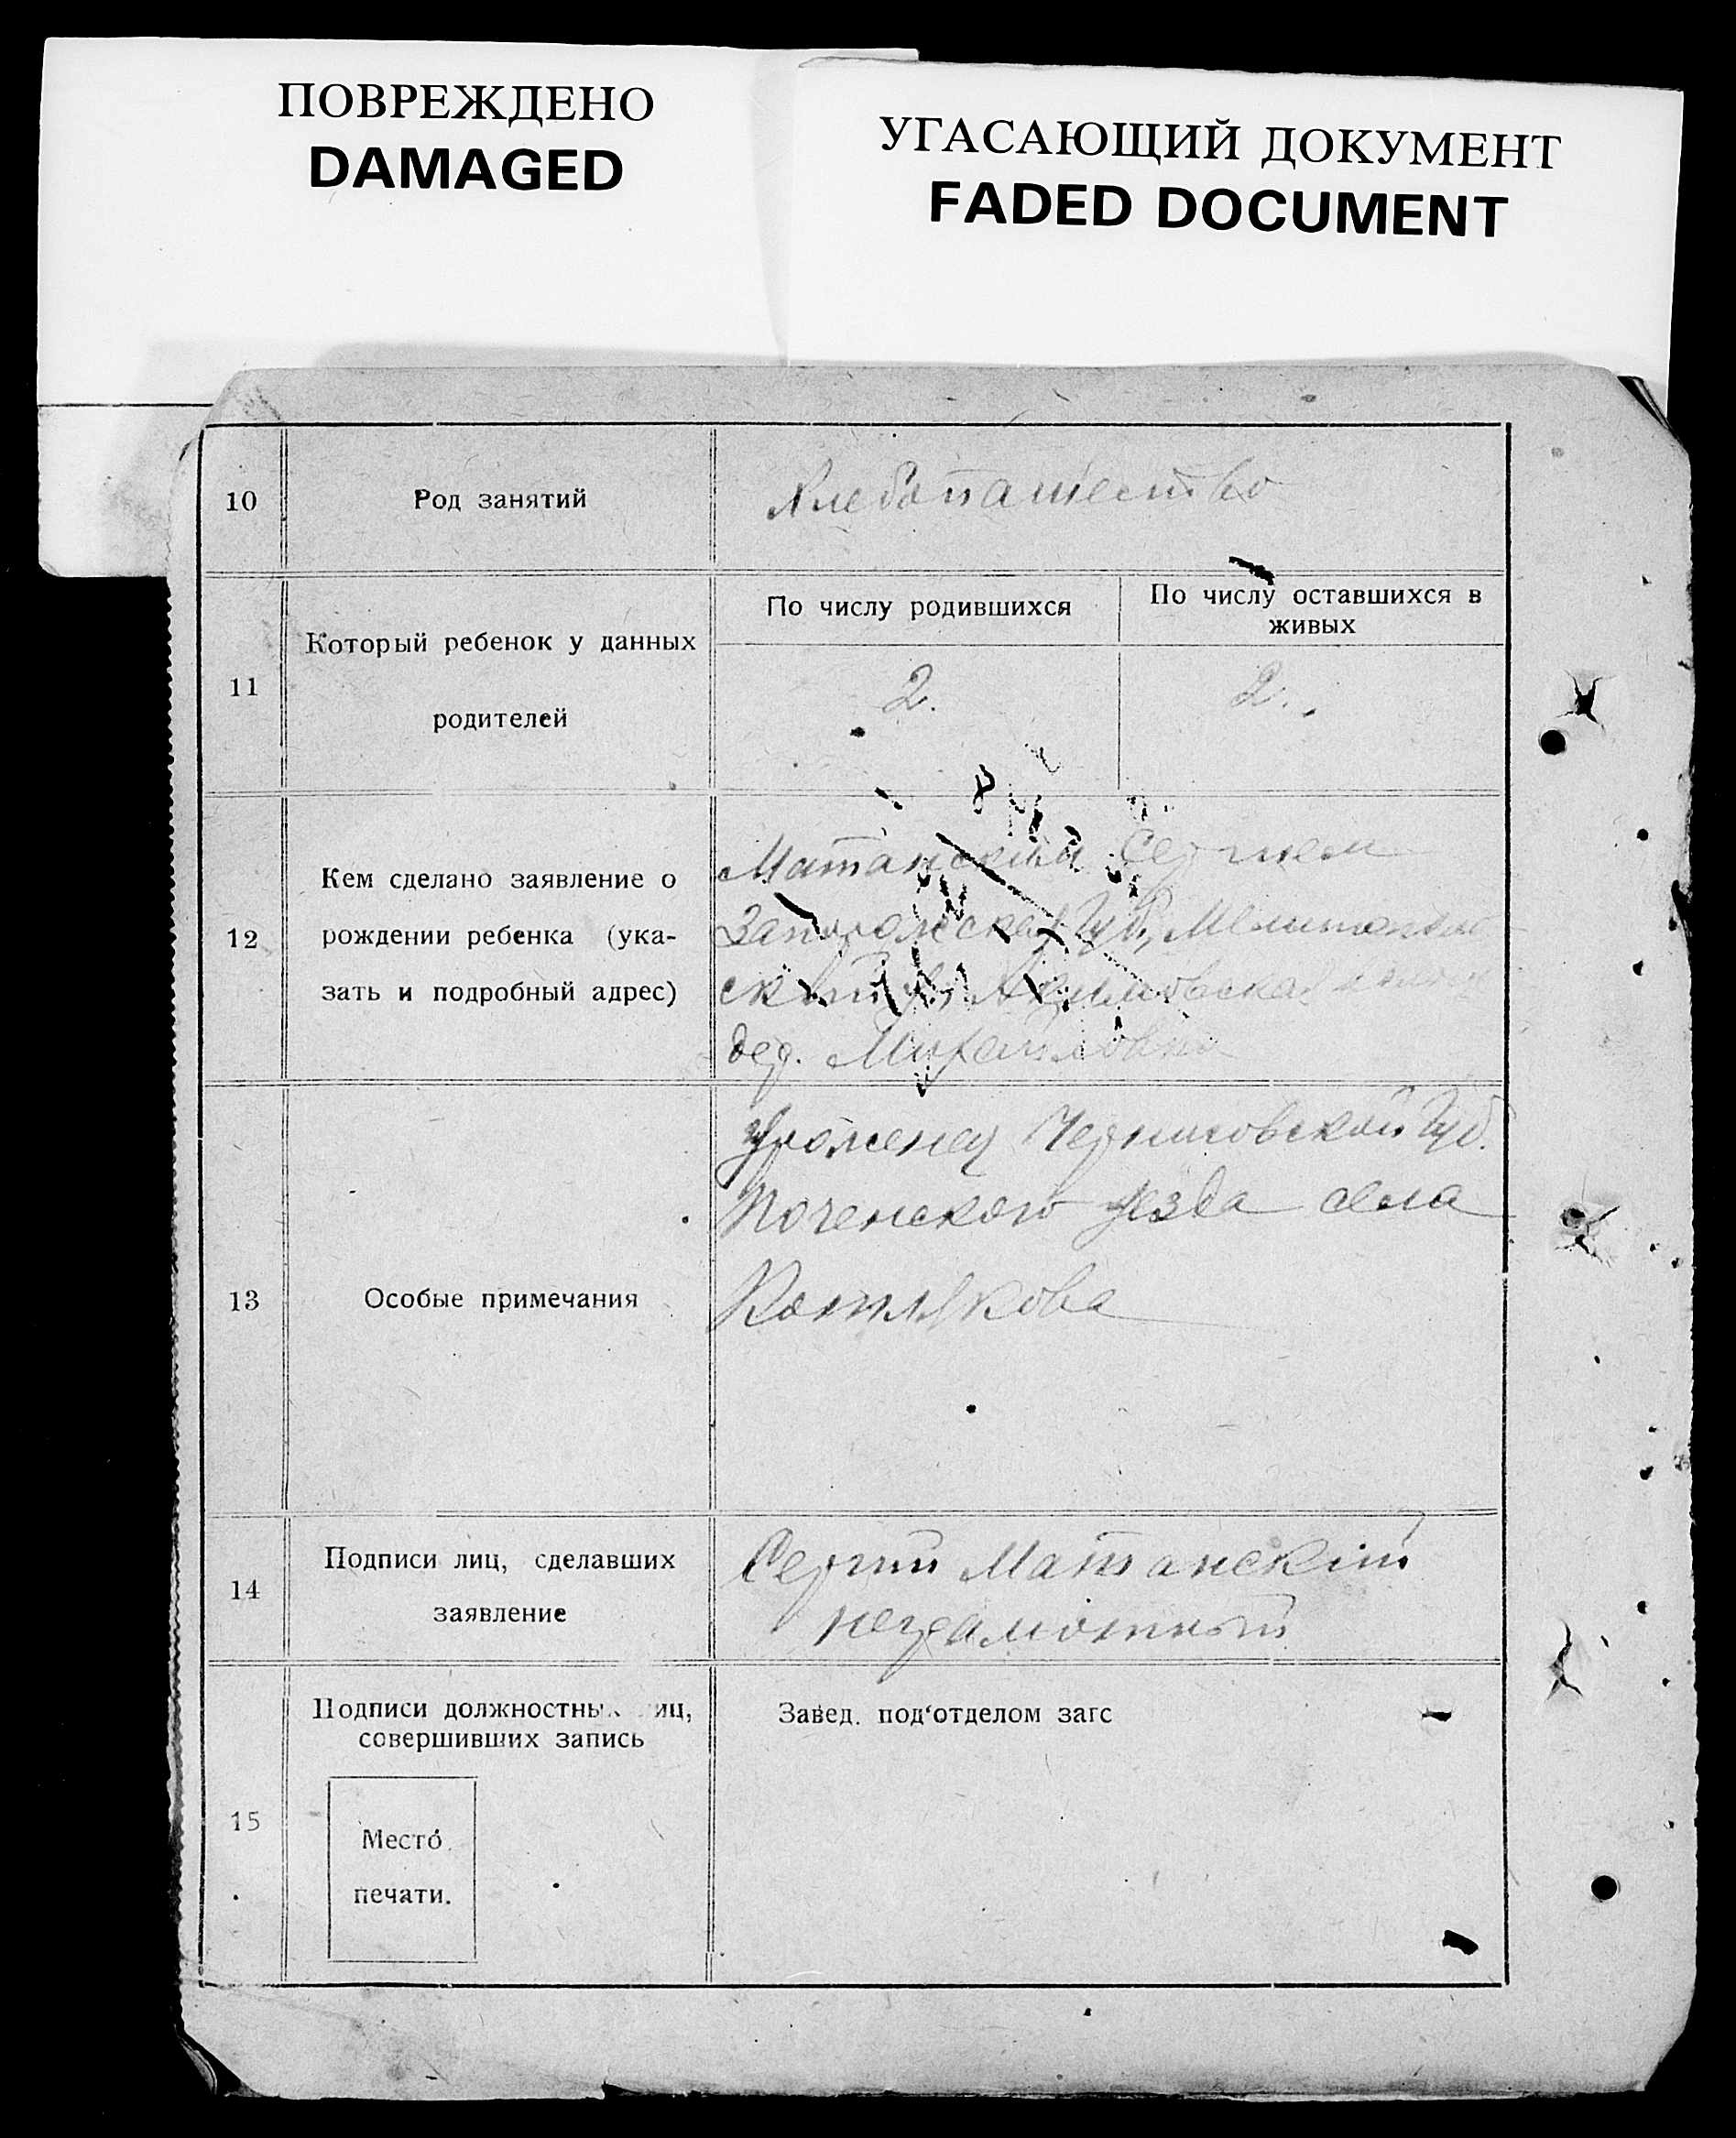 ПОВРЕЖДЕНО
DAMAGED
УГАСАЮЩИЙ ДОКУМЕНТ
FADED DOCUMENT
10
Род занятий
Хлебопашество
11
Который ребенок у данных
родителей
По числу родившихся
По числу оставшихся в
живых
2.
2.
12
Кем сделано заявление о
рождении ребенка (ука-
зать и подробный адрес)
Матанским Сергием
Запорожская Губ. Мелитополь
ский у. Акимовская
дер. Михайловка
13
Особые примечания
Уроженец Черниговской Губ.
уезда села
Котлякова
14
Подписи лиц, сделавших
заявление
Сергий Матанский
неграмотный
15
Подписи должностных лиц,
совершивших запись
Место
печати.
Завед. под‘отделом загс